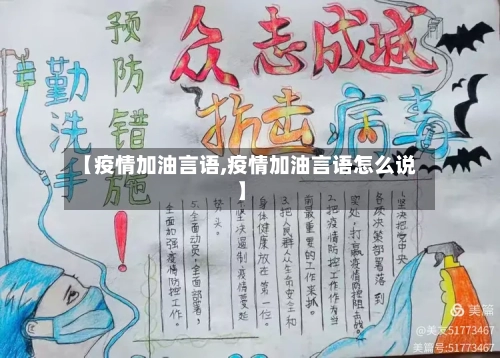 众志成城
抗击病毒
预防错施！
勤洗手
【疫情加油言语,疫情加油言语怎么说
】
1.坚决把党中央
各项决策部署落到
实处,打赢疫情防控阻击战。
2.把疫情防控工作作为当
前最重要的工作来抓。
3.把人民群众生命安全和
身体健康放在第一位。
坚决遏制疫情蔓延
势头。
5.全面动员,全面部署,
全面加强疫情防控工作。
美篇
@美友51773467
美篇号:51773467